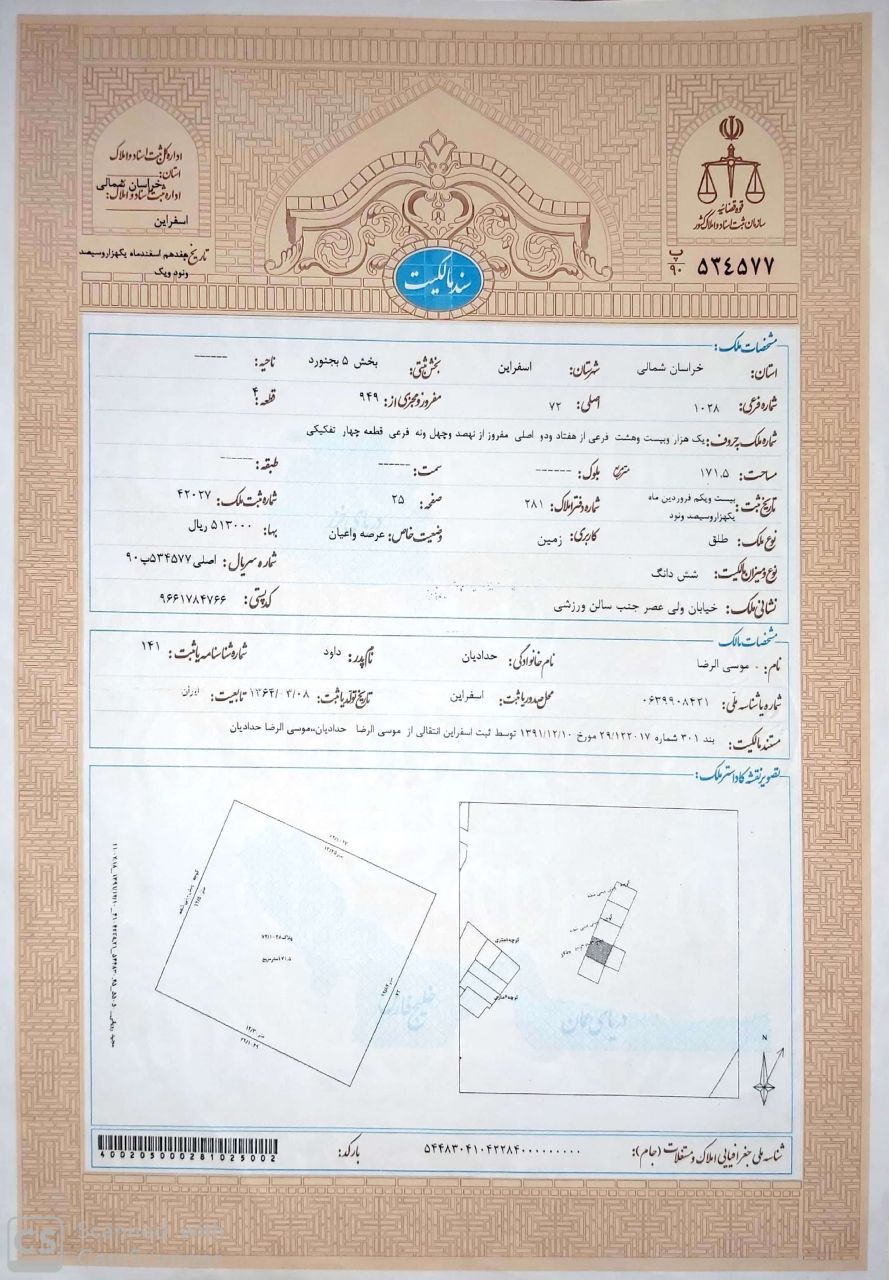 اداره کل ثبت اسناد و املاک
استان:
خراسان شمالی
اداره ثبت اسناد و املاک:
اسفراین
تاریخ: هفدهم اسفندماه یکهزاروسیصد
ونود ویک
قوه قضائیه
سازمان ثبت اسناد و املاک کشور
پ ۹۰ ۵۳۴۵۷۷
سند مالکیت
مشخصات ملک:
استان: خراسان شمالی شهرستان: اسفراین بخش ثبتی: بخش ۵ بجنورد ناحیه: ------
شماره فرعی: ۱۰۲۸ اصلی: ۷۲ مفروز و مجزی از: ۹۴۹ قطعه: ۴
شماره ملک به حروف: یک هزار وبیست وهشت فرعی از هفتاد ودو اصلی مفروز از نهصد وچهل ونه فرعی قطعه چهار تفکیکی
مساحت: ۱۷۱.۵ متر مربع بلوک: ------ سمت: ------ طبقه: ------
تاریخ ثبت: بیست ویکم فروردین ماه یکهزاروسیصد ونود شماره دفتر املاک: ۲۸۱ صفحه: ۲۵ شماره ثبت ملک: ۴۲۰۲۷
نوع ملک: طلق کاربری: زمین وضعیت خاص: عرصه واعیان بها: ۵۱۳۰۰۰ ریال
نوع و میزان مالکیت: شش دانگ شماره سریال: اصلی ۵۳۴۵۷۷پ۹۰
نشانی ملک: خیابان ولی عصر جنب سالن ورزشی کد پستی: ۹۶۶۱۷۸۴۷۶۶
مشخصات مالک
نام: موسی الرضا نام خانوادگی: حدادیان نام پدر: داود شماره شناسنامه یا ثبت: ۱۴۱
شماره یا شناسه ملی: ۰۶۳۹۹۰۸۴۲۱ محل صدور یا ثبت: اسفراین تاریخ تولد یا ثبت: ۱۳۶۴/۰۳/۰۸ تابعیت: ایران
مستند مالکیت: بند ۳۰۱ شماره ۲۹/۱۲۲۰۱۷ مورخ ۱۳۹۱/۱۲/۱۰ توسط ثبت اسفراین انتقالی از موسی الرضا حدادیان،،موسی الرضا حدادیان
تصویر نقشه کاداستر ملک:
پلاک ۷۲/۱۰۲۸
۱۷۱.۵ متر مربع
کوچه ۸ متری
کوچه ۸ متری
N
دریای خزر
خلیج فارس
دریای عمان
شناسه ملی جغرافیایی املاک و مستغلات (جام): ۵۴۴۸۳۰۴۱۰۴۲۲۸۴۰۰۰۰۰۰۰۰۰۰ بارکد:
400205000281025002
CS
Scanned with